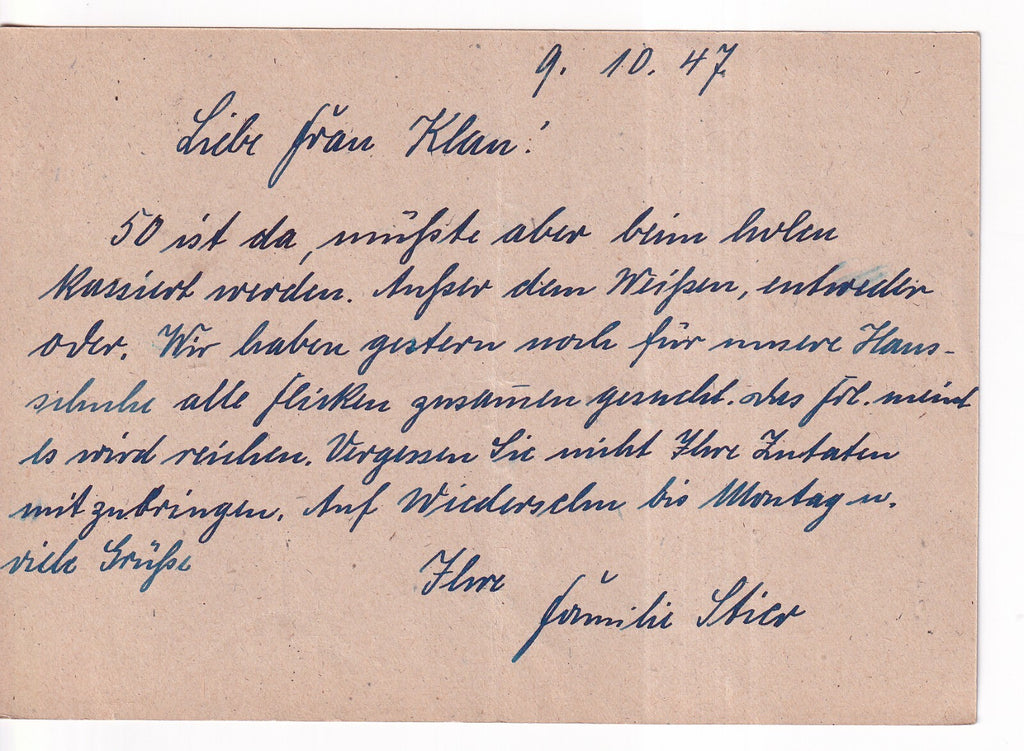 9. 10. 47
Liebe Frau Klan!
50 ist da, müßte aber beim holen
kassiert werden. Außer dem Weißen, entweder
oder. Wir haben gestern noch für unsere Haus-
schuhe alle Flicken zusam̅en gesucht. Das Frl. meint
es wird reichen. Vergessen Sie nicht Ihre Zutaten
mitzubringen. Auf Wiedersehn bis Montag u.
viele Grüße
Ihre
Familie Stier